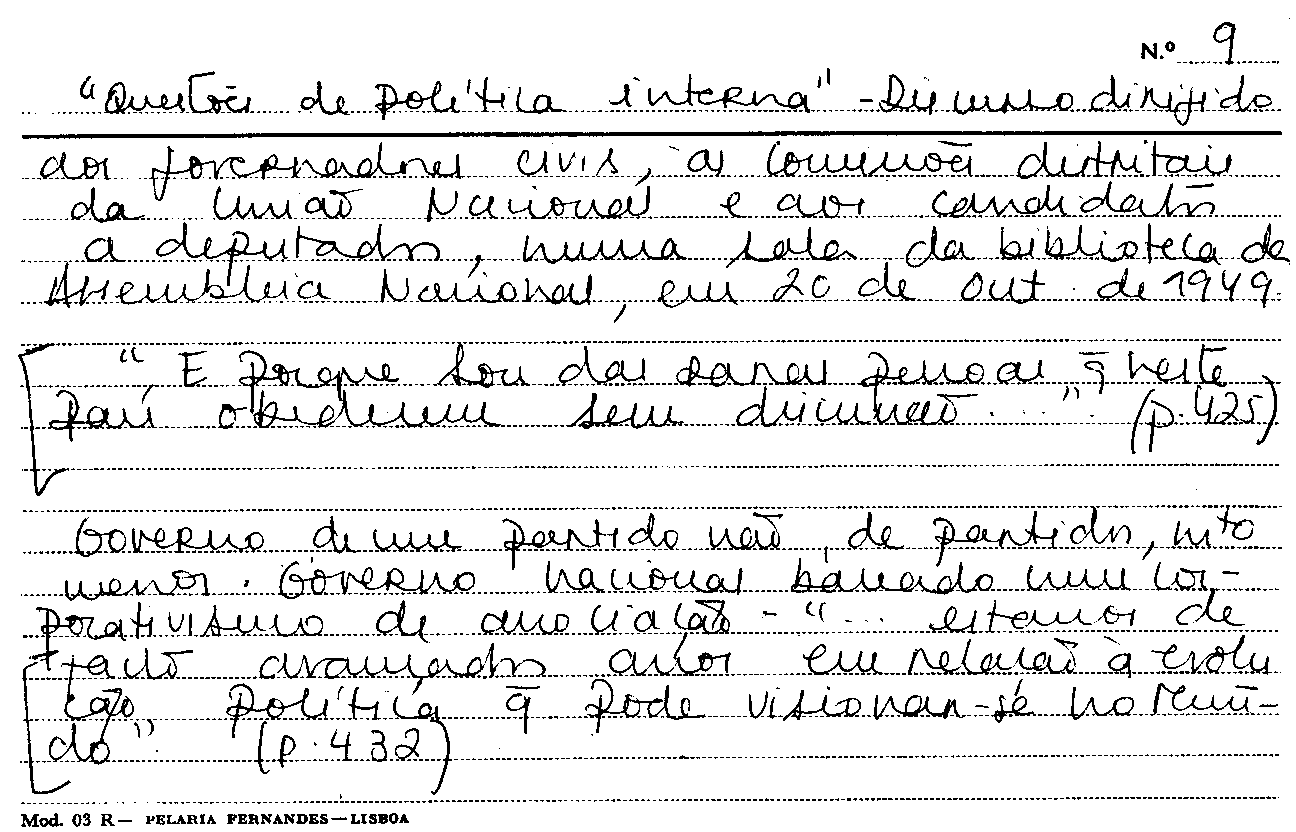 N.º 9
"Questões de política interna" - Discurso dirigido
aos governadores civis, às comissões distritais
da União Nacional e aos candidatos
a deputados, numa sala da biblioteca da
Assembleia Nacional, em 20 de Out. de 1949.
"E porque sou das raras pessoas q̄ neste
País obedecem sem discussão ....". (p. 425)
Governo de um partido não, de partidos, mto
menos. Governo nacional baseado num cor-
porativismo de associação - "... estamos de
facto avançados anos em relação à evolu
ção política q̄ pode visionar-se no Mun-
do". (p. 432)
Mod. 03 R — PELARIA FERNANDES — LISBOA